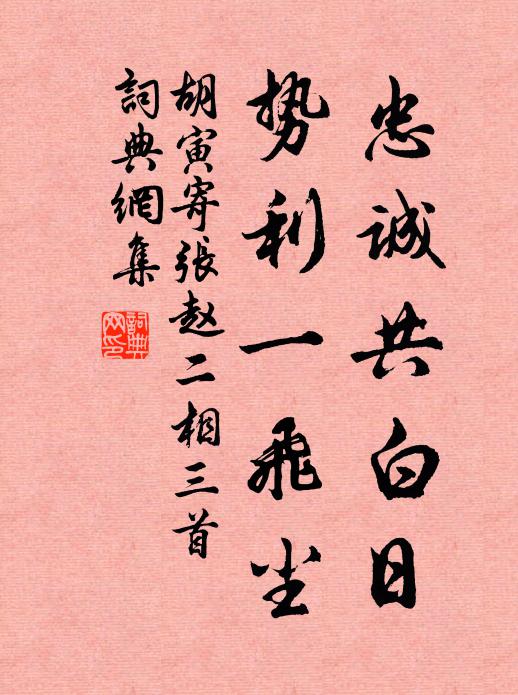 忠诚共白日
势利一飛尘
胡寅寄張赵二相三首
詞典網集
詞典网印